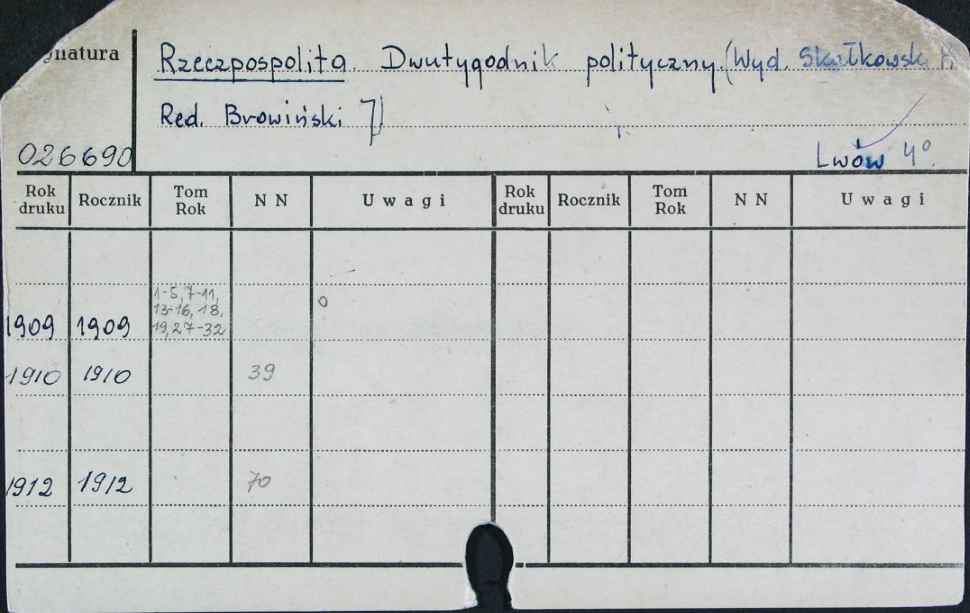 Sygnatura
Rzeczpospolita. Dwutygodnik polityczny. (Wyd. Skałkowski
Red. Browiński J)
026690
Lwów 4°.
Rok druku Rocznik Tom Rok N N Uwagi Rok druku Rocznik Tom Rok N N Uwagi
1-5, 7-11,
13-16, 18,
1909 1909 19, 27-32
1910 1910 39
1912 1912 70